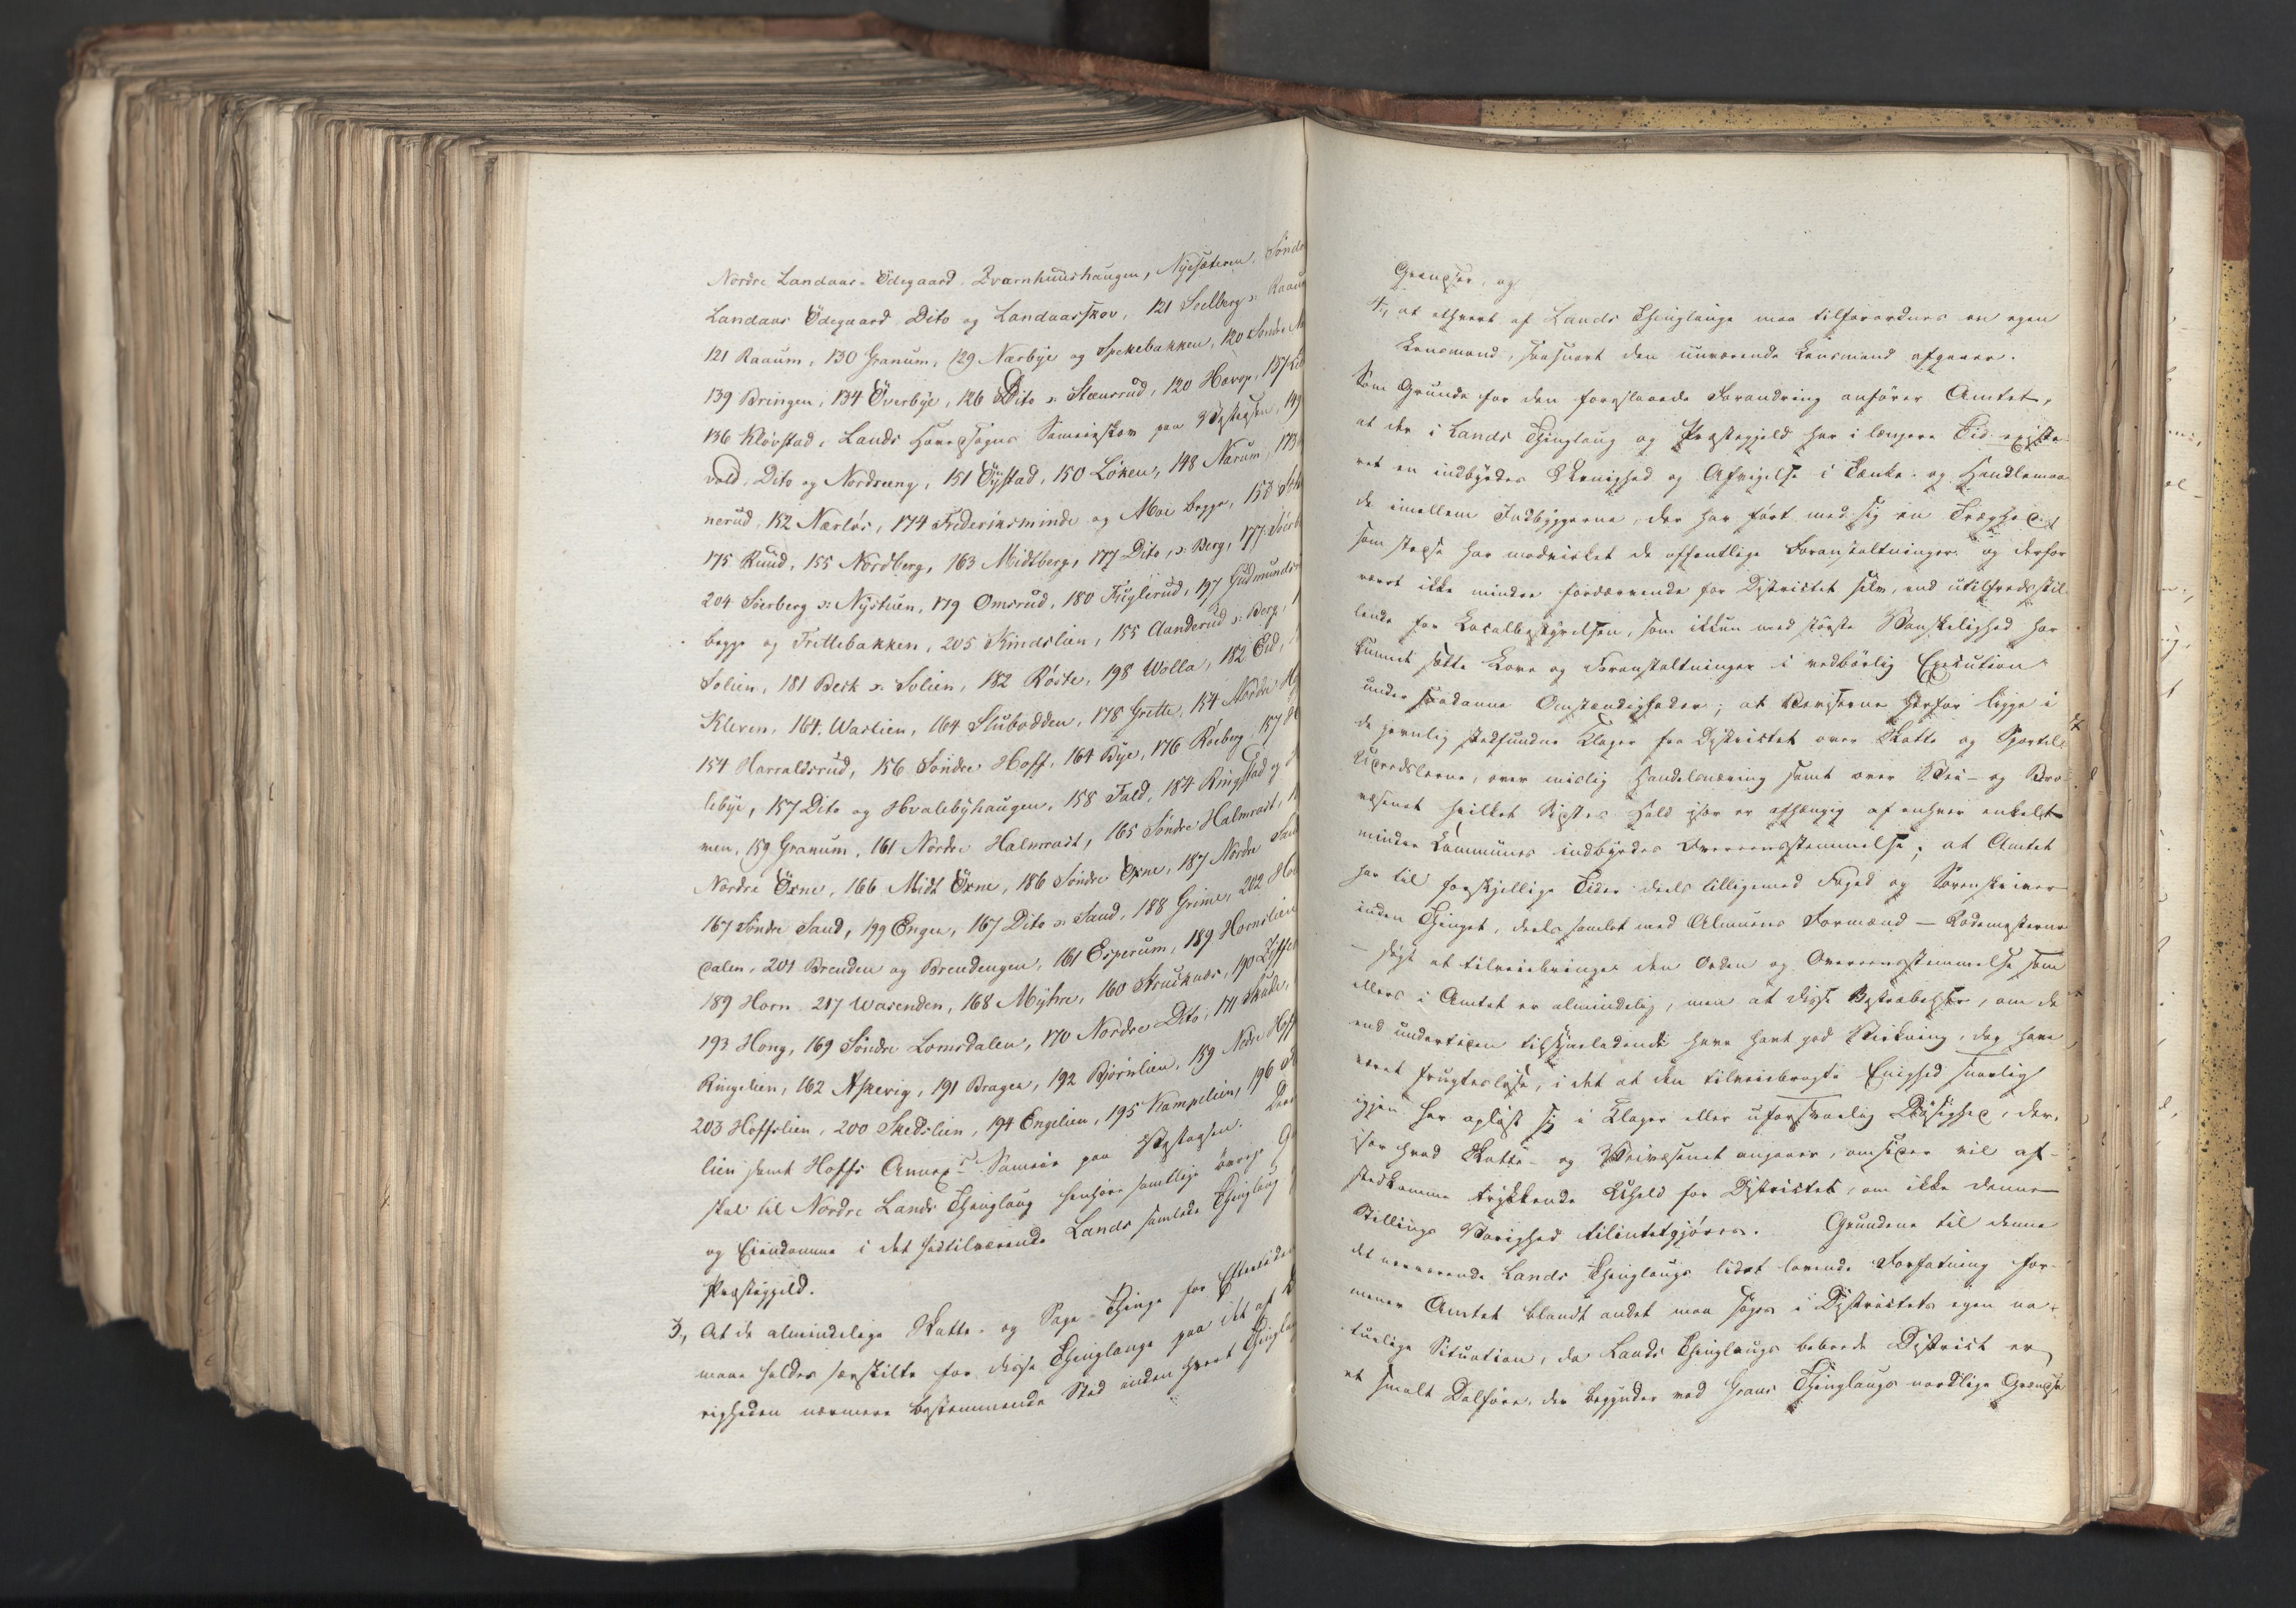 Nordre Landaas-Ödegaard, Qvarnhuushaugen, Nysæteren, Sönd
Landaas Ödegaard, Dito og Landaasskov, 121 Soelberg o: Raau
121 Raaum, 130 Granum, 129 Nærbye og Spekebakken, 120 Sondre
139 Bringen, 134 Överbye, 126 Dito o: Steensrud, 120 Havop, 137
136 Klövstad, Lands Hovedsogns Sameieskov paa Vestaasen, 149
vold, Dito og Nordreeng, 151 Öystad, 150 Löken, 148 Narum, 173
nerud, 152 Nærlös, 174 Frederiksminde og Moe begge, 153
175 Ruud, 155 Nordberg, 163 Midtberg, 177 Dito, o: Berg, 177
204 Soerberg o: Nystuen, 179 Omsrud, 180 Fuglerud, 197 Gudmunds
begge og Frettebakken, 205 Kindslien, 155 Aanderud o: Berg,
Solien, 181 Beck o: Solien, 182 Röste, 198 Wolla, 182 Eid,
Kleven, 164 Waslien, 164 Stubodden, 178 Grette, 154 Nordre
154 Harraldsrud, 156 Söndre Hoff, 164 Bye, 176 Roeberg, 157
lebye, 157 Dito og Hvalebyhaugen, 158 Fald, 184 Ringstad og
men, 159 Granum, 161 Nordre Halmrast, 165 Söndre Halmrast,
Nordre Öxne, 166 Midt Öxne, 186 Söndre Öxne, 187 Nordre Sand
167 Söndre Sand, 199 Engen, 167 Dito o: Sand, 188 Grime, 202
dalen, 201 Brenden og Brendengen, 161 Esperum, 189 Hornslien
189 Horn, 217 Wasenden, 168 Myhre, 160 Skrucknæs, 190
193 Hong, 169 Söndre Lomsdalen, 170 Nordre Dito, 171 Skute,
Ringelien, 162 Askevig, 191 Bragen, 192 Björnlien, 159 Nedre Hoff
203 Hoffslien, 200 Skedslien, 194 Engelien, 195 Kampelien, 196
lien samt Hoffs Annex Sameie paa Vestaasen.
skal til Nordre Lands Thinglaug henhöre samtlige övrige
og Eiendomme i det hidtilværende Lands samlede Thinglaug
Præstegjeld.
3, At de almindelige Skatte- og Sage-Thinge for Eftertiden
maae holdes særskilte for disse Thinglauge paa det af
righeden nærmere bestemmende Sted inden hvert Thinglaug
Grændser, og
4, at ethvert af Lands Thinglauge maa tilforordnes en egen
Lensmand, saasnart den nuværende Lensmand afgaaer.
Som Grunde for den foreslaaede Forandring anförer Amtet,
at der i Lands Thinglaug og Præstegjeld har i længere Tid existe-
ret en indbyrdes Uenighed og Afvigelse i Tænke- og Handlemaa-
de imellem Indbyggerne, der har fört med sig en Træghed
som stedse har modvirket de offentlige Foranstaltninger og derfor
været ikke mindre fordærvende for Districtet selv, end utilfredsstil-
lende for Localbestyrelsen, som ikkun med störste Vanskelighed har
kunnet sætte Love og Foranstaltninger i vedbörlig Execution
under saadanne Omstændigheder; at Beviserne herfor ligge i
de jevnlig stedfundne Klager fra Districtet over Skatte og Sportel
Udredslerne, over mislig Handelsnæring samt over Vei- og Bro-
væsenet hvilket Sidstes Held især er afhængig af enhver enkelt
mindre Communes indbyrdes Overeensstemmelse; at Amtet
har til forskjellige Tider deels tilligemed Foged og Sorenskriver
inden Thinget, deels samlet med Almuens Formænd – Rodemesterne
– sögt at tilveiebringe den Orden og Overeensstemmelse som
ellers i Amtet er almindelig, men at disse Bestræbelser, om de
end undertiden tilsyneladende have havt god Virkning, dog have
været frugteslöse, i det at den tilveiebragte Enighed snarlig
igjen har oplöst sig i Klager eller uforsvarlig Ladhed, der,
især hvad Skatte- og Veivæsenet angaaer, omsider vil af-
stedkomme trykkende Uheld for Districtet, om ikke denne
Stillings Varighed tilintetgjöres. Grundene til denne
det nærværende Lands Thinglaugs lidet lovende Forfatning for-
mener Amtet blandt andet maa söges i Districtets egen na-
turlige Situation, da Lands Thinglaugs beboede District er
et smalt Dalföre, der begynder ved Grans Thinglaugs nordlige Grændse